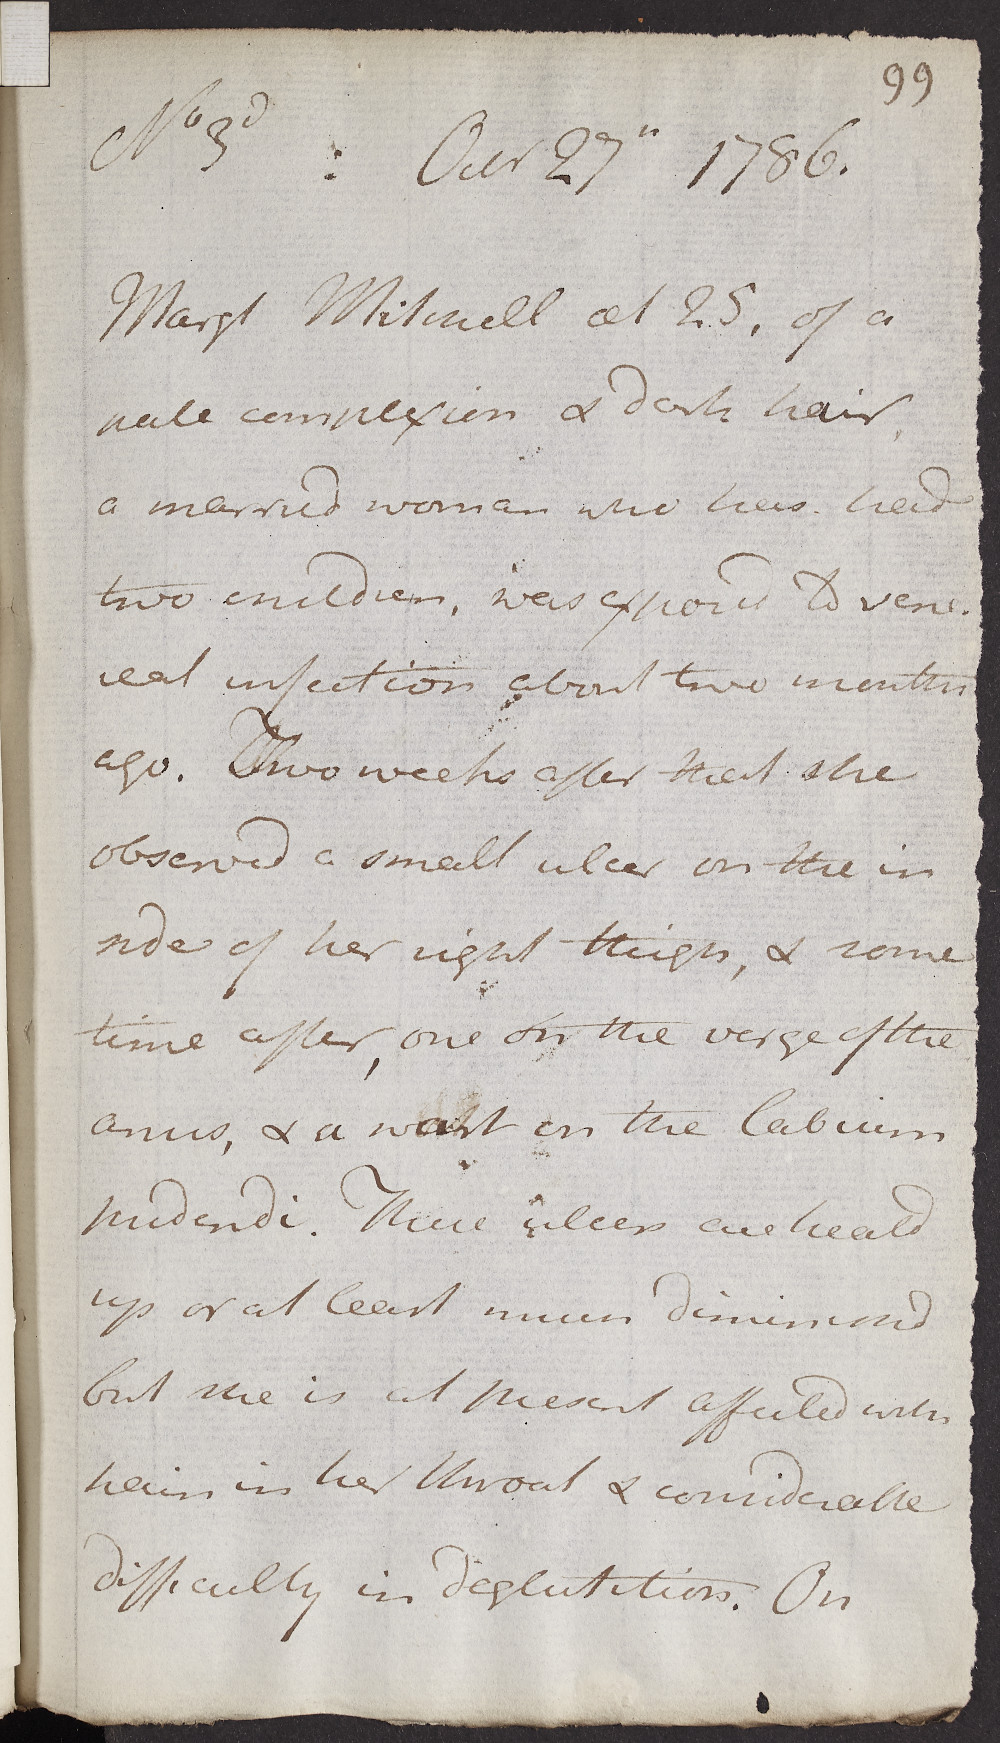 99
No 3d : Octr 27th 1786.
Margt Mitchell æt 25, of a
pale complexion & dark hair,
a married woman who has had
two children, was exposed to vene-
real infection about two months
ago. Two weeks after that she
observed a small ulcer on the in
side of her right thigh, & some
time after, one on the verge of the
anus, & a wart on the labium
pudendi. These ulcers are heald
up or at least much diminishd
but she is at present affected with
pain in her throat & considerable
difficulty in deglutition. On